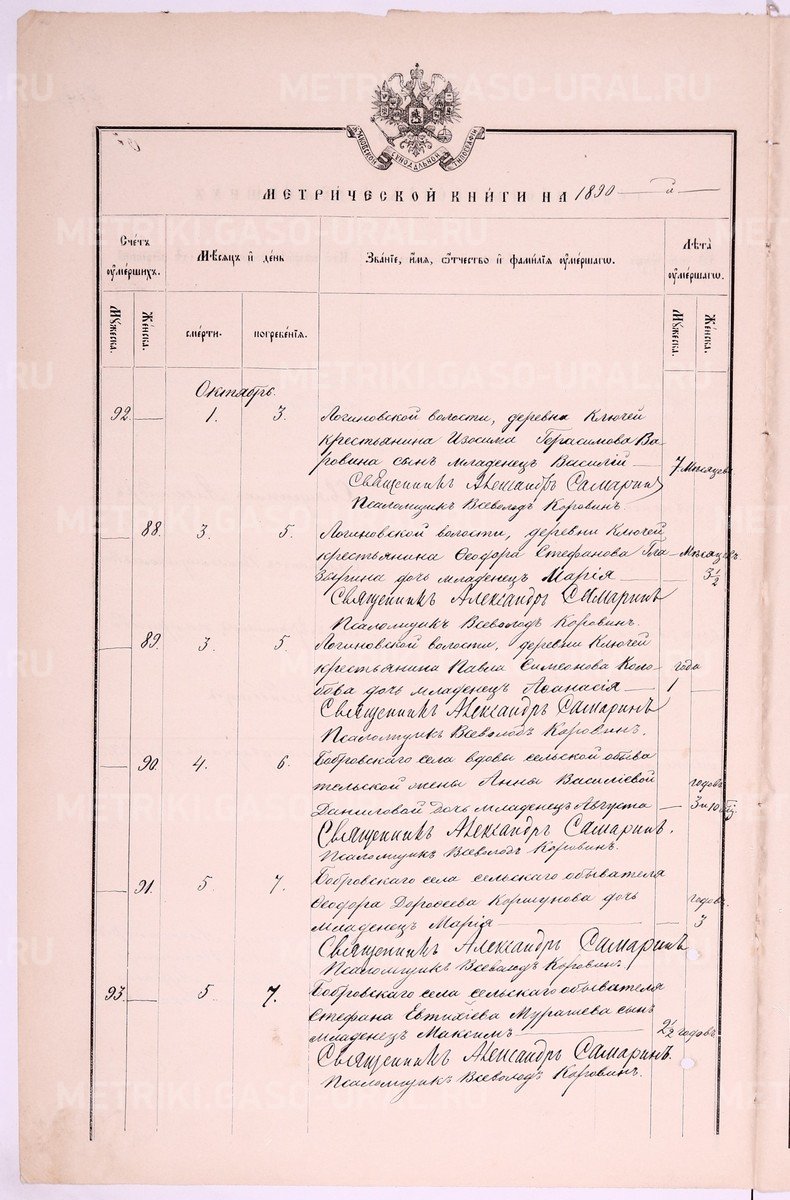 МОСКОВСКОЙ СѴНОДАЛЬНОЙ ТИПОГРАФІИ
МЕТРИЧЕСКОЙ КНИГИ НА 1890 г.
Счетъ оумершихъ. Мѣсяцъ и день Званіе, имя, отчество и фамилія оумершагѡ. Лѣта оумершагѡ.
Мужеска. Женска. смерти. погребенія. Мужеска. Женска.
Октябрь.
92. 1. 3. Логиновской волости, деревни Ключей
крестьянина Изосима Герасимова Ва-
ровина сынъ младенецъ Василій 7 мѣсяцевъ
Священникъ Александръ Самаринъ
Псаломщикъ Всеволодъ Коровинъ.
88. 3. 5. Логиновской волости, деревни Ключей
крестьянина Ѳеодора Стефанова Гла- Мѣсяцевъ
зырина дочь младенецъ Марія 3 1/2
Священникъ Александръ Самаринъ
Псаломщикъ Всеволодъ Коровинъ.
89. 3. 5. Логиновской волости, деревни Ключей
крестьянина Павла Симеонова Коло- года
бова дочь младенецъ Аѳанасія 1
Священникъ Александръ Самаринъ
Псаломщикъ Всеволодъ Коровинъ.
90. 4. 6. Бобровскаго села вдовы сельской обыва
тельской жены Анны Василіевой годовъ
Даниловой дочь младенецъ Августа 3 и 10
Священникъ Александръ Самаринъ.
Псаломщикъ Всеволодъ Коровинъ.
91. 5. 7. Бобровскаго села сельскаго обывателя
Ѳеодора Дороѳеева Коршунова дочь годовъ
младенецъ Марія 3
Священникъ Александръ Самаринъ
Псаломщикъ Всеволодъ Коровинъ
93. 5. 7. Бобровскаго села сельскаго обывателя
Стефана Евтихіева Мурашева сынъ
младенецъ Максимъ 2 1/2 годовъ
Священникъ Александръ Самаринъ.
Псаломщикъ Всеволодъ Коровинъ.
METRIKI.GASO-URAL.RU